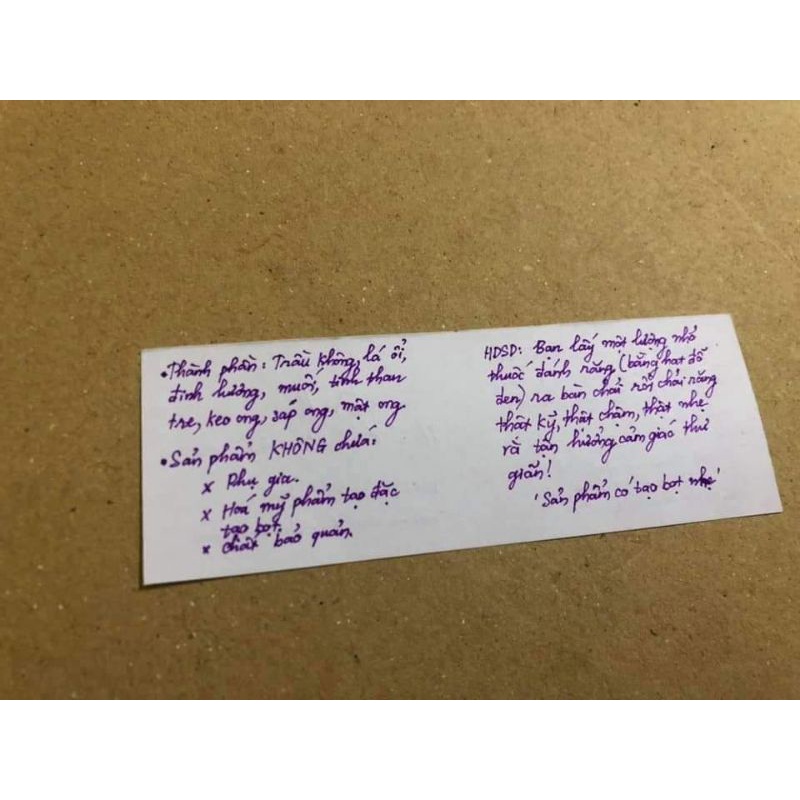 • Thành phần: Trầu không, lá ổi,
đinh hương, muối, tinh than
tre, keo ong, sáp ong, mật ong.
• Sản phẩm KHÔNG chứa:
x Phụ gia.
x Hoá mỹ phẩm tạo đặc
tạo bọt.
x Chất bảo quản.
HDSD: Bạn lấy một lượng nhỏ
thuốc đánh răng (bằng hạt đỗ
đen) ra bàn chải rồi chải răng
thật kỹ, thật chậm, thật nhẹ
và tận hưởng cảm giác thư
giãn!
'Sản phẩm có tạo bọt nhẹ'